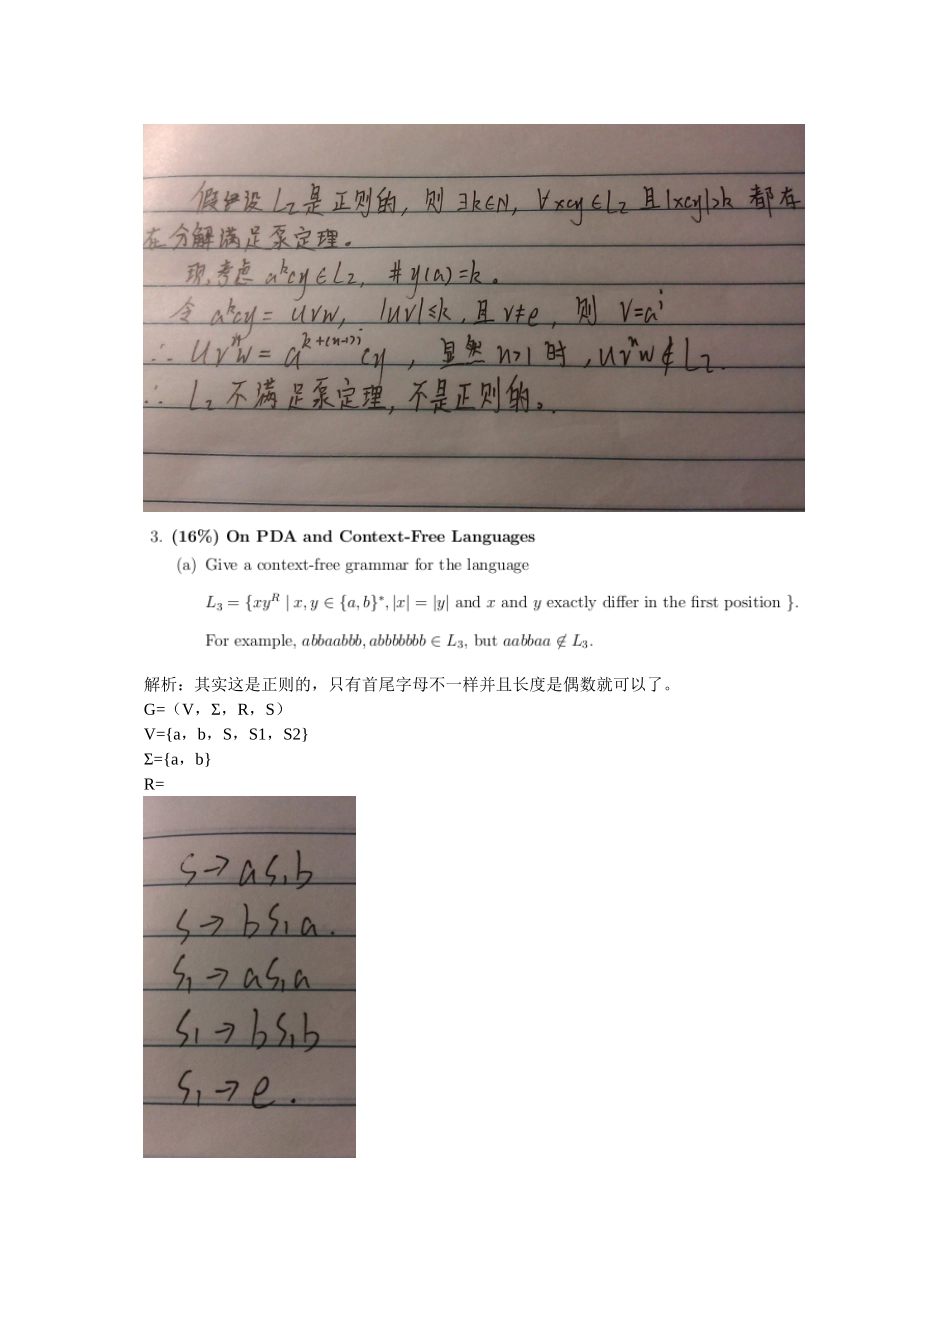 假设设 L₂是正则的, 则 ∃k∈N, ∀xcy∈L₂ 且|xcy|>k 都存
在分解满足泵定理。
现考虑 aᵏcy∈L₂, #y(a)=k。
令 aᵏcy= uvw, |uv|≤k, 且 v≠e, 则 V=aⁱ
∴ uvⁿw= a^{k+(n-1)i}cy, 显然 n>1 时, uvⁿw∉L₂.
∴ L₂不满足泵定理, 不是正则的。
3. (16%) On PDA and Context-Free Languages
(a) Give a context-free grammar for the language
L₃ = {xyᴿ | x, y ∈ {a, b}*, |x| = |y| and x and y exactly differ in the first position }.
For example, abbaabbb, abbbbbbb ∈ L₃, but aabbaa ∉ L₃.
解析：其实这是正则的，只有首尾字母不一样并且长度是偶数就可以了。
G=（V，Σ，R，S）
V={a，b，S，S1，S2}
Σ={a，b}
R=
S→aS₁b
S→bS₁a.
S₁→aS₁a
S₁→bS₁b
S₁→e.